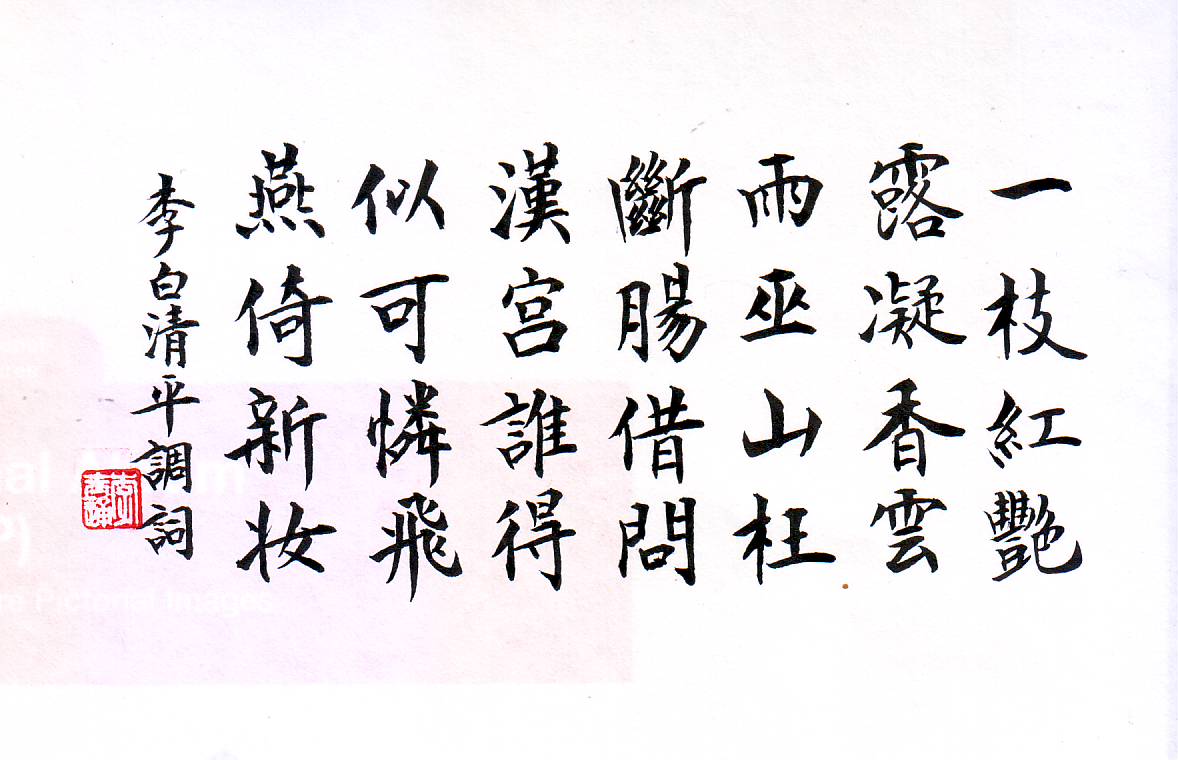 一枝紅艷
露凝香雲
雨巫山枉
斷腸借問
漢宮誰得
似可憐飛
燕倚新妝
李白清平調詞